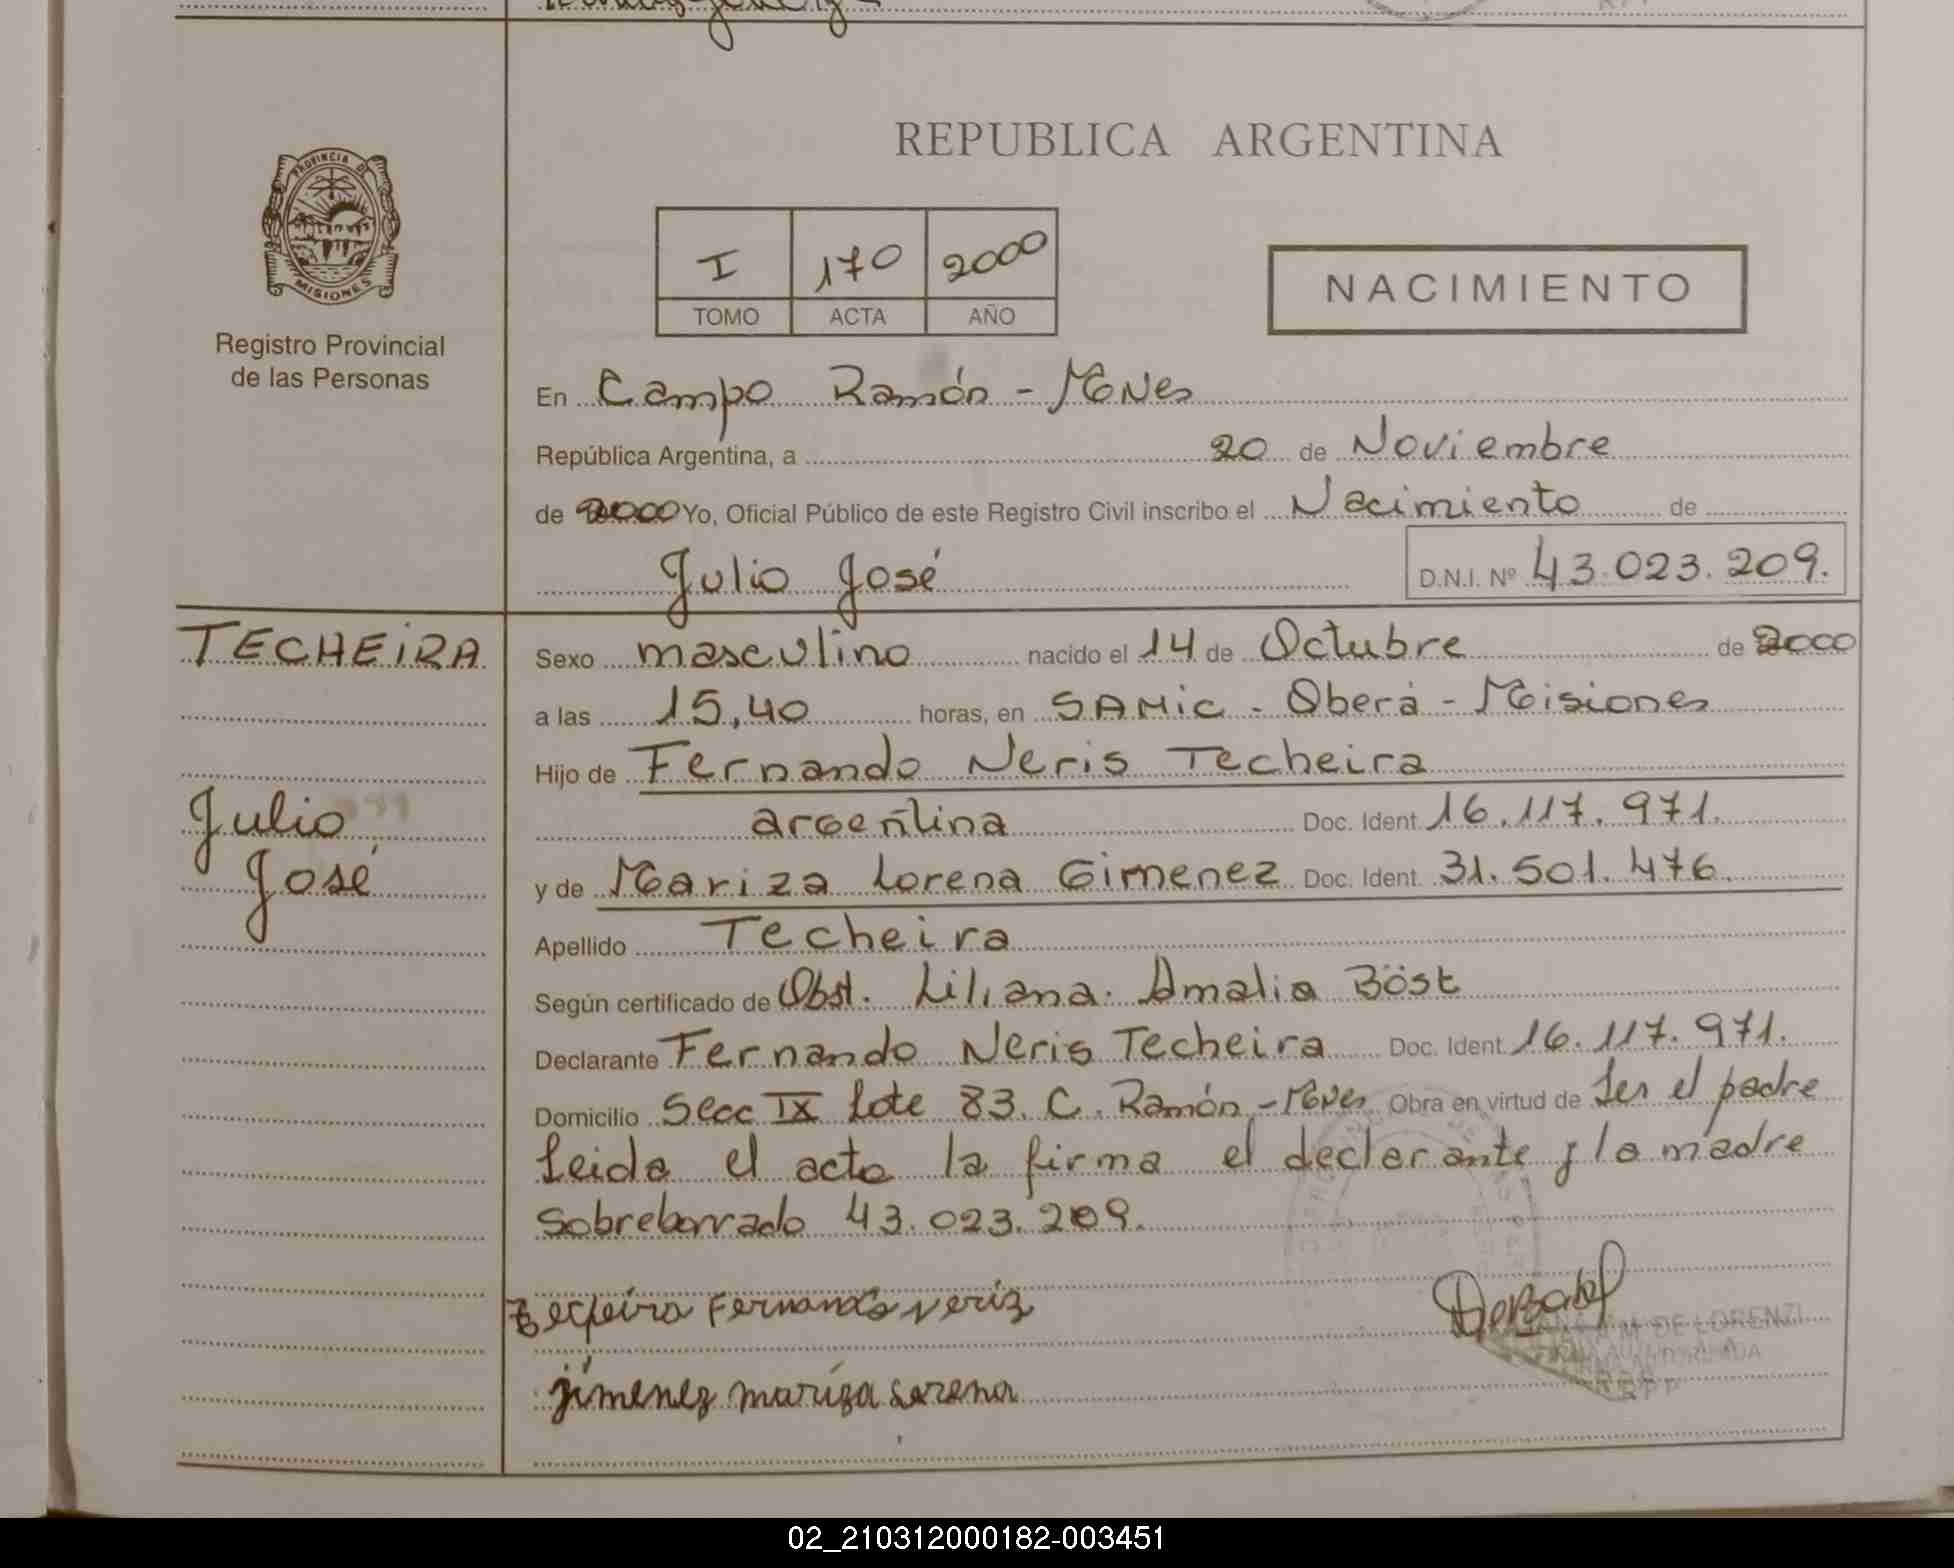 REPUBLICA ARGENTINA
PROVINCIA DE
MISIONES
Registro Provincial
de las Personas
I 170 2000
TOMO ACTA AÑO
NACIMIENTO
En Campo Ramón - Mnes
República Argentina, a 20 de Noviembre
de 2000 Yo, Oficial Público de este Registro Civil inscribo el Nacimiento de
Julio José D.N.I. Nº 43.023.209.
TECHEIRA
Julio
José
Sexo masculino nacido el 14 de Octubre de 2000
a las 15,40 horas, en SAMic - Oberá - Misiones
Hijo de Fernando Neris Techeira
argentina Doc. Ident. 16.117.971.
y de Mariza Lorena Gimenez Doc. Ident. 31.501.476.
Apellido Techeira
Según certificado de Obst. Liliana Amalia Böst
Declarante Fernando Neris Techeira Doc. Ident. 16.117.971.
Domicilio Secc IX Lote 83. C. Ramón - Mnes Obra en virtud de Ser el padre
Leida el acta la firma el declarante y la madre
Sobreborrado 43.023.209.
Techeira Fernando Neriz
jimenez mariza Lorena
DE LORENZI
02_210312000182-003451